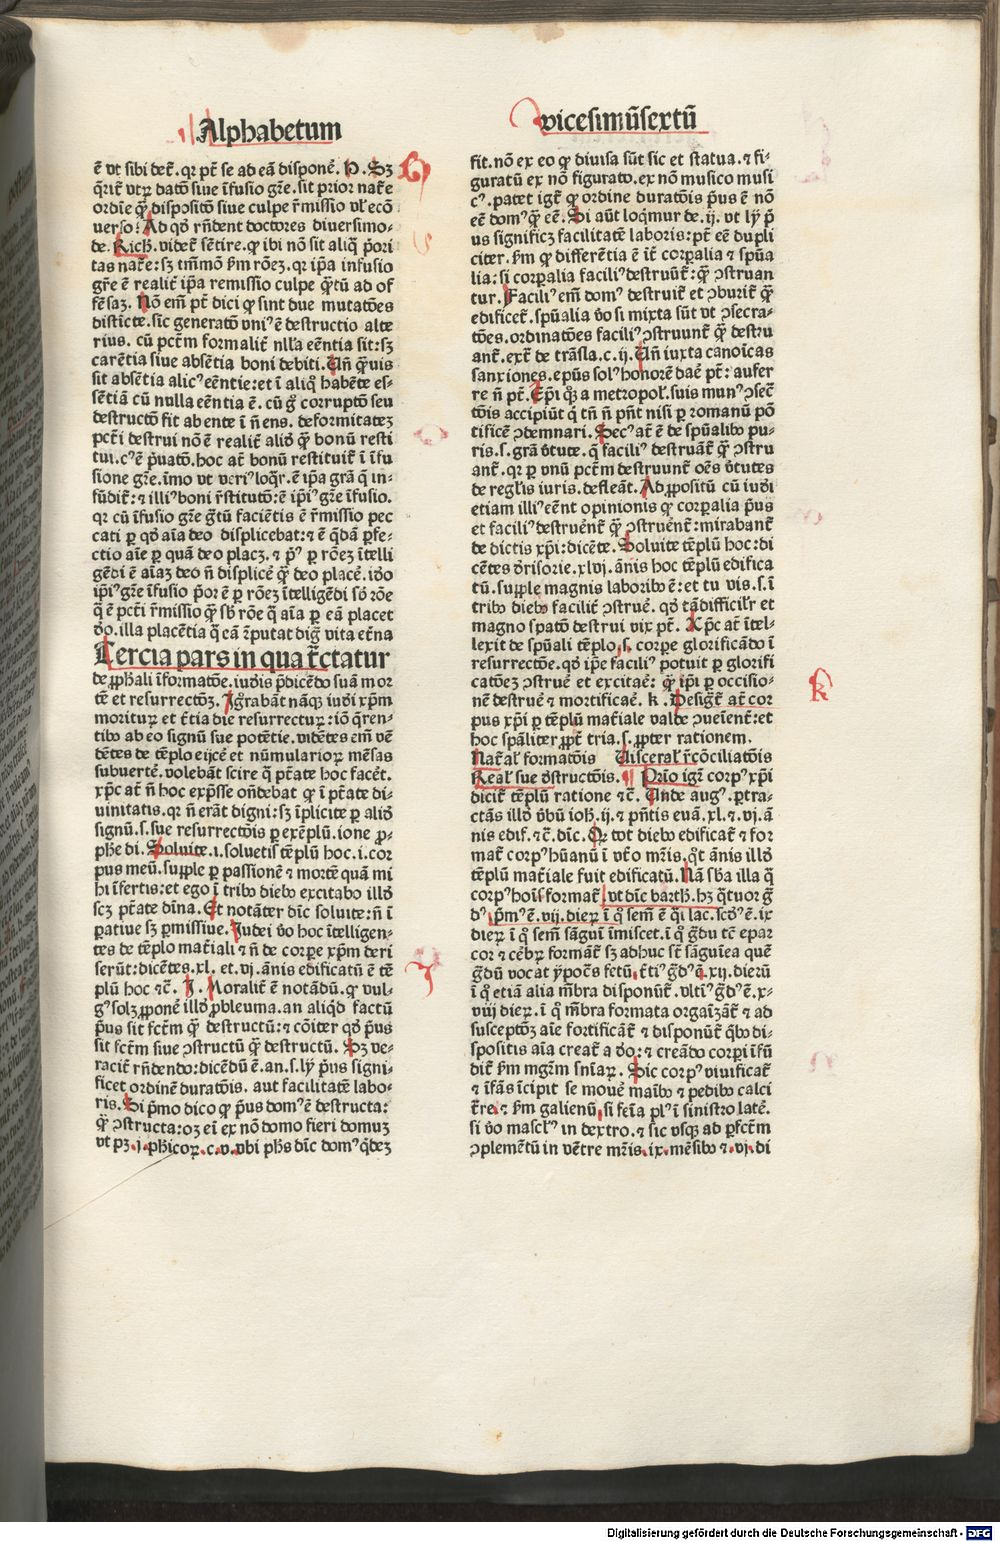 Alphabetum
vicesimūsextū
ē vt sibi det̄. qr pt̄ se ad eā disponē. H. Sꝫ
q̄rit̄ vtꝝ datō siue īfusio gr̄e. sit prior nat̄e
ordīe ꝙ̄ dispositō siue culpe r̄missio vl̓ ecō
uerso? Ad qd̓ rn̄dent doctores diuersimo-
de. Rich̄. videt̄ sētire. ꝙ ibi nō sit aliq̄ p̄ori
tas nat̄e: sꝫ tm̄mō fm̄ rōeꝫ. qr ip̄a infusio
gr̄e ē realit̄ ip̄a remissio culpe q̄tū ad of
fēsaꝫ. Nō em̄ pt̄ dici ꝙ sint due mutatōes
distīcte. sic generatō vniꝰ ē destructio alte
rius. cū pctm̄ formalit̄ nll̓a eēntia sit: sꝫ
carētia siue absētia boni debiti. Un̄ q̄uis
sit absētia alicꝰ eēntie: et ī aliq̊ habēte es-
sētiā cū nulla eēntia ē. cū g̊ corruptō seu
destructō fit ab ente ī n̄ ens. deformitateꝫ
pctī destrui nō ē realit̄ aliđ ꝙ̄ bonū resti
tui. cꝰ ē p̄uatō. hoc at̄ bonū restituit̄ ī īfu
sione gr̄e. īmo vt veriꝰ loq̄r. ē ip̄a gr̄a q̄ in-
fūdit̄: ⁊ illiꝰ boni r̄stitutō: ē ip̄iꝰ gr̄e īfusio.
qr cū īfusio gr̄e g̊tū faciētis ē r̄missio pec
cati ꝑ qd̓ aīa deo displicebat: ⁊ ē q̄dā ꝑfe-
ctio aīe ꝑ quā deo placꝫ. ⁊ pꝰ ꝑ rōeꝫ ītelli
gēdi ē aīaꝫ deo n̄ displicē ꝙ̄ deo placē. iđo
ip̄iꝰ gr̄e īfusio p̄or ē ꝑ rōeꝫ ītelligēdi sb̓ rōe
q̄ ē pctī r̄missio ꝙ̄ sb̓ rōe q̄ aīa ꝑ eā placet
đo. illa placētia q̄ eā r̄putat dig̅ vita et̄na
Tercia pars in qua tr̄ctatur
de ꝓph̄ali īformatōe. iuđis p̄dicēdo suā mor
tē et resurrectōꝫ. Ig̊rabāt nāꝙ iuđi xp̄m
morituꝝ et t̄tia die resurrectuꝝ: iō q̄ren-
tibꝰ ab eo signū sue potētie. vidētes em̄ vē
dētes de tēplo eijcē et nūmularioꝝ mēsas
subuertē. volebāt scire q̄ ptāte hoc facēt.
xp̄c at̄ n̄ hoc exp̄sse on̄debat ꝙ ī ptāte di-
uinitatis. qr n̄ erāt digni: sꝫ īplicite ꝑ aliđ
signū. s. sue resurrectōis ꝑ exēplū. ione ꝓ-
phe di. Soluite. i. soluetis tēplū hoc. i. cor
pus meū. supple ꝑ passionē ⁊ mortē quā mi
hi īfertis: et ego ī tribꝰ diebꝰ excitabo illđ
scꝫ ptāte dīna. Et notāter dic̄ soluite: n̄ ī
ꝑatiue sꝫ ꝑmissiue. Judei đo hoc ītelligen-
tes de tēplo mat̄iali ⁊ n̄ de corꝑe xp̄m deri
serūt: dicētes. xl. et. vj. ānis edificatū ē tē
plū hoc ⁊c̄. J. Moralit̄ ē notādū. ꝙ vul-
gꝰ solꝫ ꝓponē illđ ꝓbleuma. an aliqđ factū
p̄us sit fctm̄ ꝙ̄ destructū: ⁊ cōiter qđ p̄us
sit fctm̄ siue ↄstructū ꝙ̄ destructū. Sꝫ ve-
racit̄ rn̄dendo: dicēdū ē. an. s. lꝫ p̄us signi-
ficet ordinē duratōis. aut facilitatē labo-
ris. Si p̄mo dico ꝙ p̄us domꝰ ē destructa:
ꝙ̄ ↄstructa: oꝫ eī ex nō domo fieri domuꝫ
vt pꝫ. j. phīcoꝝ. c. v. vbi phs dic̄ domꝰ q̄deꝫ
fit. nō ex eo ꝙ diuisa sūt sic et statua. ⁊ fi-
guratū ex nō figurato. ex nō musico musi
cꝰ. patet igr̄ ꝙ ordine duratōis p̄us ē nō
eē domꝰ ꝙ̄ eē. Si aūt loq̄mur de. ij. vt lꝫ p̄
us significꝫ facilitatē laboris: pt̄ eē dupli
citer. fm̄ ꝙ differētia ē it̄ corꝑalia ⁊ sp̄ua
lia: si corꝑalia faciliꝰ destruūt̄: ꝙ̄ ↄstruan
tur. Faciliꝰ em̄ domꝰ destruit̄ et ↄburit̄ ꝙ̄
edificet̄. sp̄ualia đo si mixta sūt vt ↄsecra-
tōes. ordinatōes faciliꝰ ↄstruunt̄ ꝙ̄ destru
ant̄. ext̄ de trāsla. c. ij. Un̄ iuxta canoīcas
sanxiones. ep̄us solꝰ honorē daē pt̄: aufer
re n̄ pt̄. Ep̄i q̊ꝫ a metropol̓. suis munꝰ ↄsec̄
tōis accipiūt q̄ tn̄ n̄ pn̄t nisi ꝑ romanū pō
tificē ↄdemnari. Secꝰ at̄ ē de sp̄ualibꝰ pu-
ris. s. gr̄a v̓tute. q̄ faciliꝰ destruāt̄ ꝙ̄ ↄstru
ant̄. qr ꝑ vnū pctm̄ destruunt̄ oēs v̓tutes
de regl̓is iuris. defleāt̄. Ad ꝓpositū cū iuđi
etiam illiꝰ eēnt opinionis ꝙ corꝑalia p̄us
et faciliꝰ destruēnt̄ ꝙ̄ ↄstruēnt̄: mirabant̄
de dictis xp̄i: dicēte. Soluite tēplū hoc: di
cētes đrisorie. xlvj. ānis hoc tēplū edifica
tū. supple magnis laboribꝰ ē: et tu vis. s. ī
tribꝰ diebꝰ facilit̄ ↄstruē. qđ tādifficilr̄ et
magno spatō destrui vix pt̄. Xp̄c at̄ ītel-
lexit de sp̄uali tēplo. s. corꝑe glorificādo ī
resurrectōe. qđ ip̄e faciliꝰ potuit ꝑ glorifi
catōeꝫ ↄstruē et excitaē: ꝙ̄ ip̄i ꝑ occisio-
nē destruē ⁊ mortificaē. k. Desigt̄ at̄ cor
pus xp̄i ꝑ tēplū mat̄iale valde ↄueīent̄: et
hoc spāliter ꝓpt̄ tria. s. ꝓpter rationem.
Nat̄al̓ formatōis Uisceral̓ r̄cōciliatōis
Real̓ sue đstructōis. ¶ Prīo igr̄ corpꝰ xp̄i
dicit̄ tēplū ratione ⁊c̄. Unde augꝰ. ꝑtra-
ctās illđ v̓bū ioh̄. ij. ⁊ pn̄tis euā. xl. ⁊. vj. ā
nis edif. ⁊c̄. dic̄. Qꝛ tot diebꝰ edificat̄ ⁊ for
mat̄ corpꝰ hūanū ī vt̄o mr̄is. q̊t ānis illđ
tēplū mat̄iale fuit edificatū. Nā sb̓a illa q̄
corpꝰ hoīs format̄ vt dic̄ barth̄. hꝫ q̄tuor g̅
dꝰ. p̄mꝰ ē. vij. dieꝝ ī q̊ sem̄ ē q̄i lac. scđꝰ ē. ix
dieꝝ ī q̊ sem̄ sāguī īmiscet̄. ī q̊ g̅du tē epar
cor ⁊ cēbꝝ formāt̄ sꝫ adhuc st̄ sāguīea quē
g̅dū vocat ypocs̄ fetū. t̄tiꝰ g̅dꝰ ē. xij. dierū
ī q̊ etiā alia mb̄ra disponūt̄. vltīꝰ g̅dꝰ ē. x-
viij dieꝝ. ī q̊ mb̄ra formata orgaīzāt̄ ⁊ ad
susceptōꝫ aīe fortificāt̄ ⁊ disponūt̄ q̄bꝰ di-
spositis aīa creat̄ a đo: ⁊ creādo corꝑi īfū
dit̄ fm̄ mgr̄m snīaꝝ. Sic corpꝰ viuificat̄
⁊ īfās īcipit se mouē maībꝰ ⁊ pedibꝰ calci
t̄re. ⁊ fm̄ galienū, si feīa plꝰ ī sinistro latē.
si đo mascl̓ꝰ in dextro. ⁊ sic vsꝙ ad ꝑfctm̄
ↄplemētū in vētre mr̄is. ix. mēsibꝰ ⁊. vj. di
H
J
k
Digitalisierung gefördert durch die Deutsche Forschungsgemeinschaft - DFG